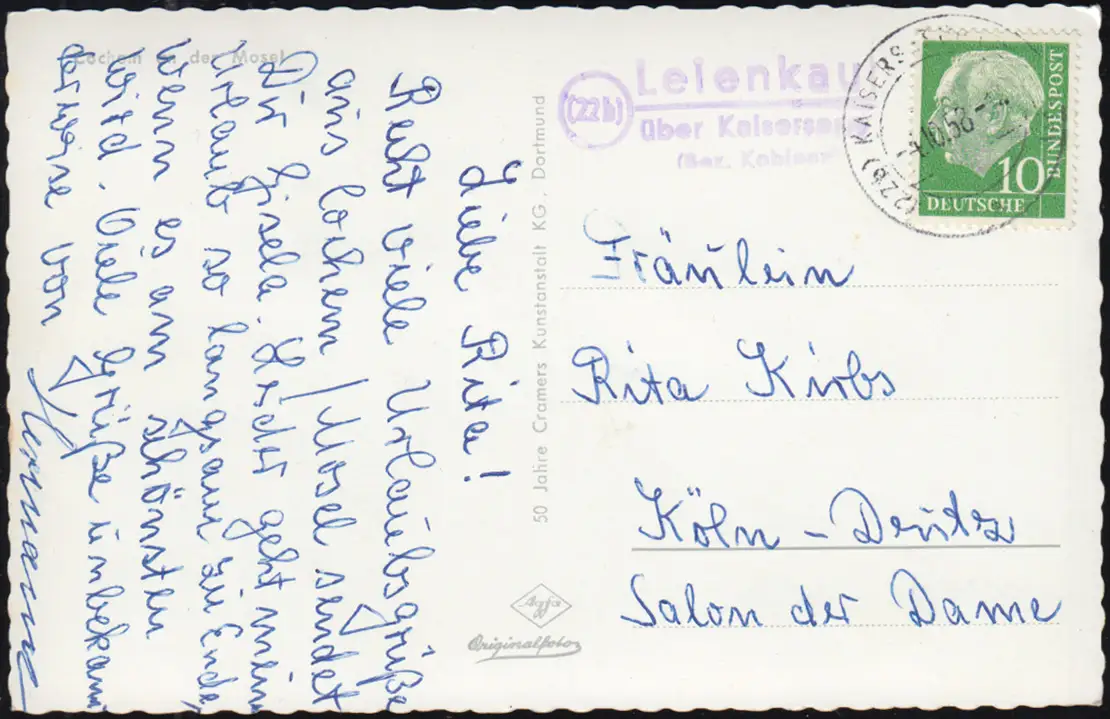 Cochem an der Mosel
Liebe Rita!
Recht viele Urlaubsgrüße
aus Cochem / Mosel sendet
Dir Gisela. Leider geht mein
Urlaub so langsam zu Ende,
wenn es am schönsten
wird. Viele Grüße unbekann
terweise von
Hermann
50 Jahre Cramers Kunstanstalt KG, Dortmund
Agfa
Originalfoto
(22b)
Leienkau
über Kaisersesch
(Bez. Koblenz
(22b) KAISERS
-4.10.58
10
DEUTSCHE
BUNDESPOST
Fräulein
Rita Kirbs
Köln - Deutz
Salon der Dame